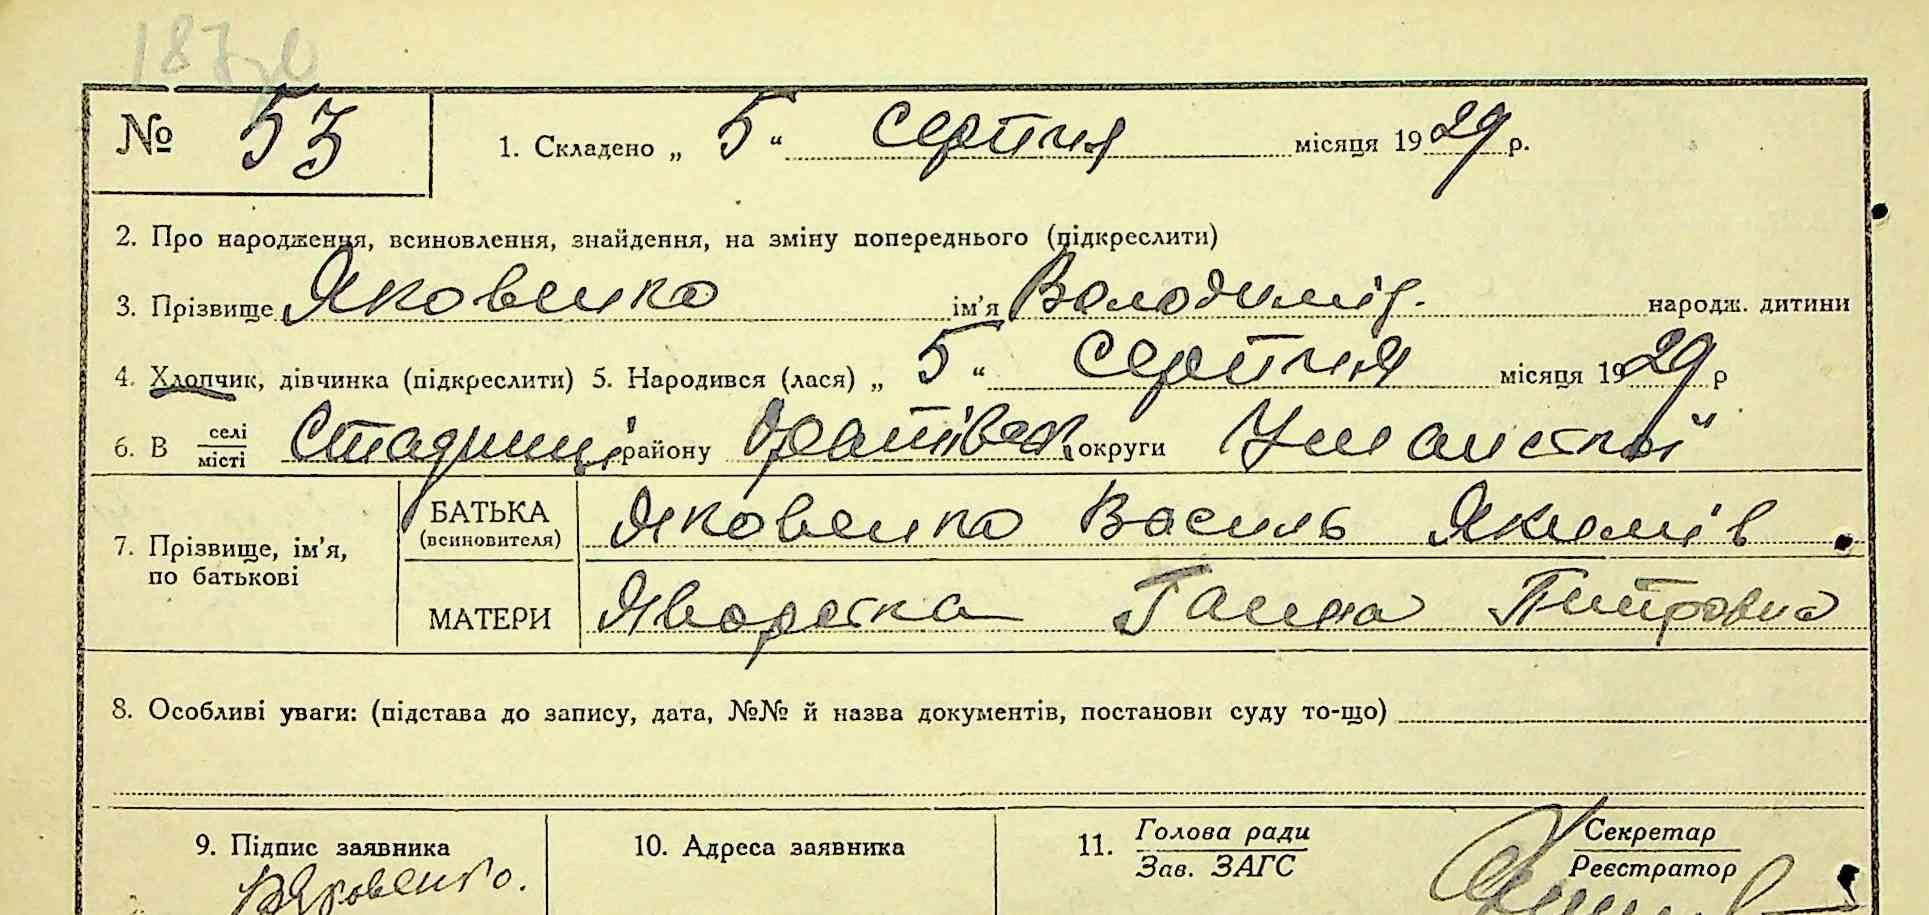 № 53 1. Складено „ 5 “ серпня місяця 1929 р.
2. Про народження, всиновлення, знайдення, на зміну попереднього (підкреслити)
3. Прізвище Яковенко ім’я Володимір. народж. дитини
4. Хлопчик, дівчинка (підкреслити) 5. Народився (лася) „ 5 “ серпня місяця 1929 р
6. В селі місті Стадниці району округи Уманської
7. Прізвище, ім’я, по батькові
БАТЬКА (всиновителя) Яковенко Василь Якимів
МАТЕРИ Яворска Ганна Питровна
8. Особливі уваги: (підстава до запису, дата, №№ й назва документів, постанови суду то-що)
9. Підпис заявника 10. Адреса заявника 11. Голова ради Зав. ЗАГС Секретар Реєстратор
Вяковенко.